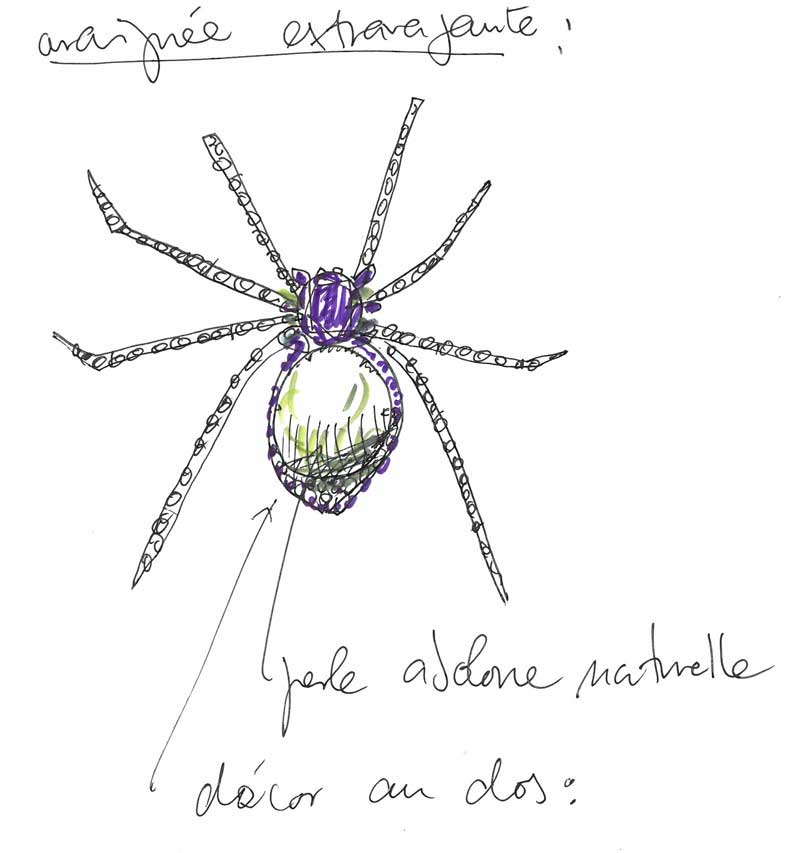 araignée extravagante :
perle abalone naturelle
décor au dos :